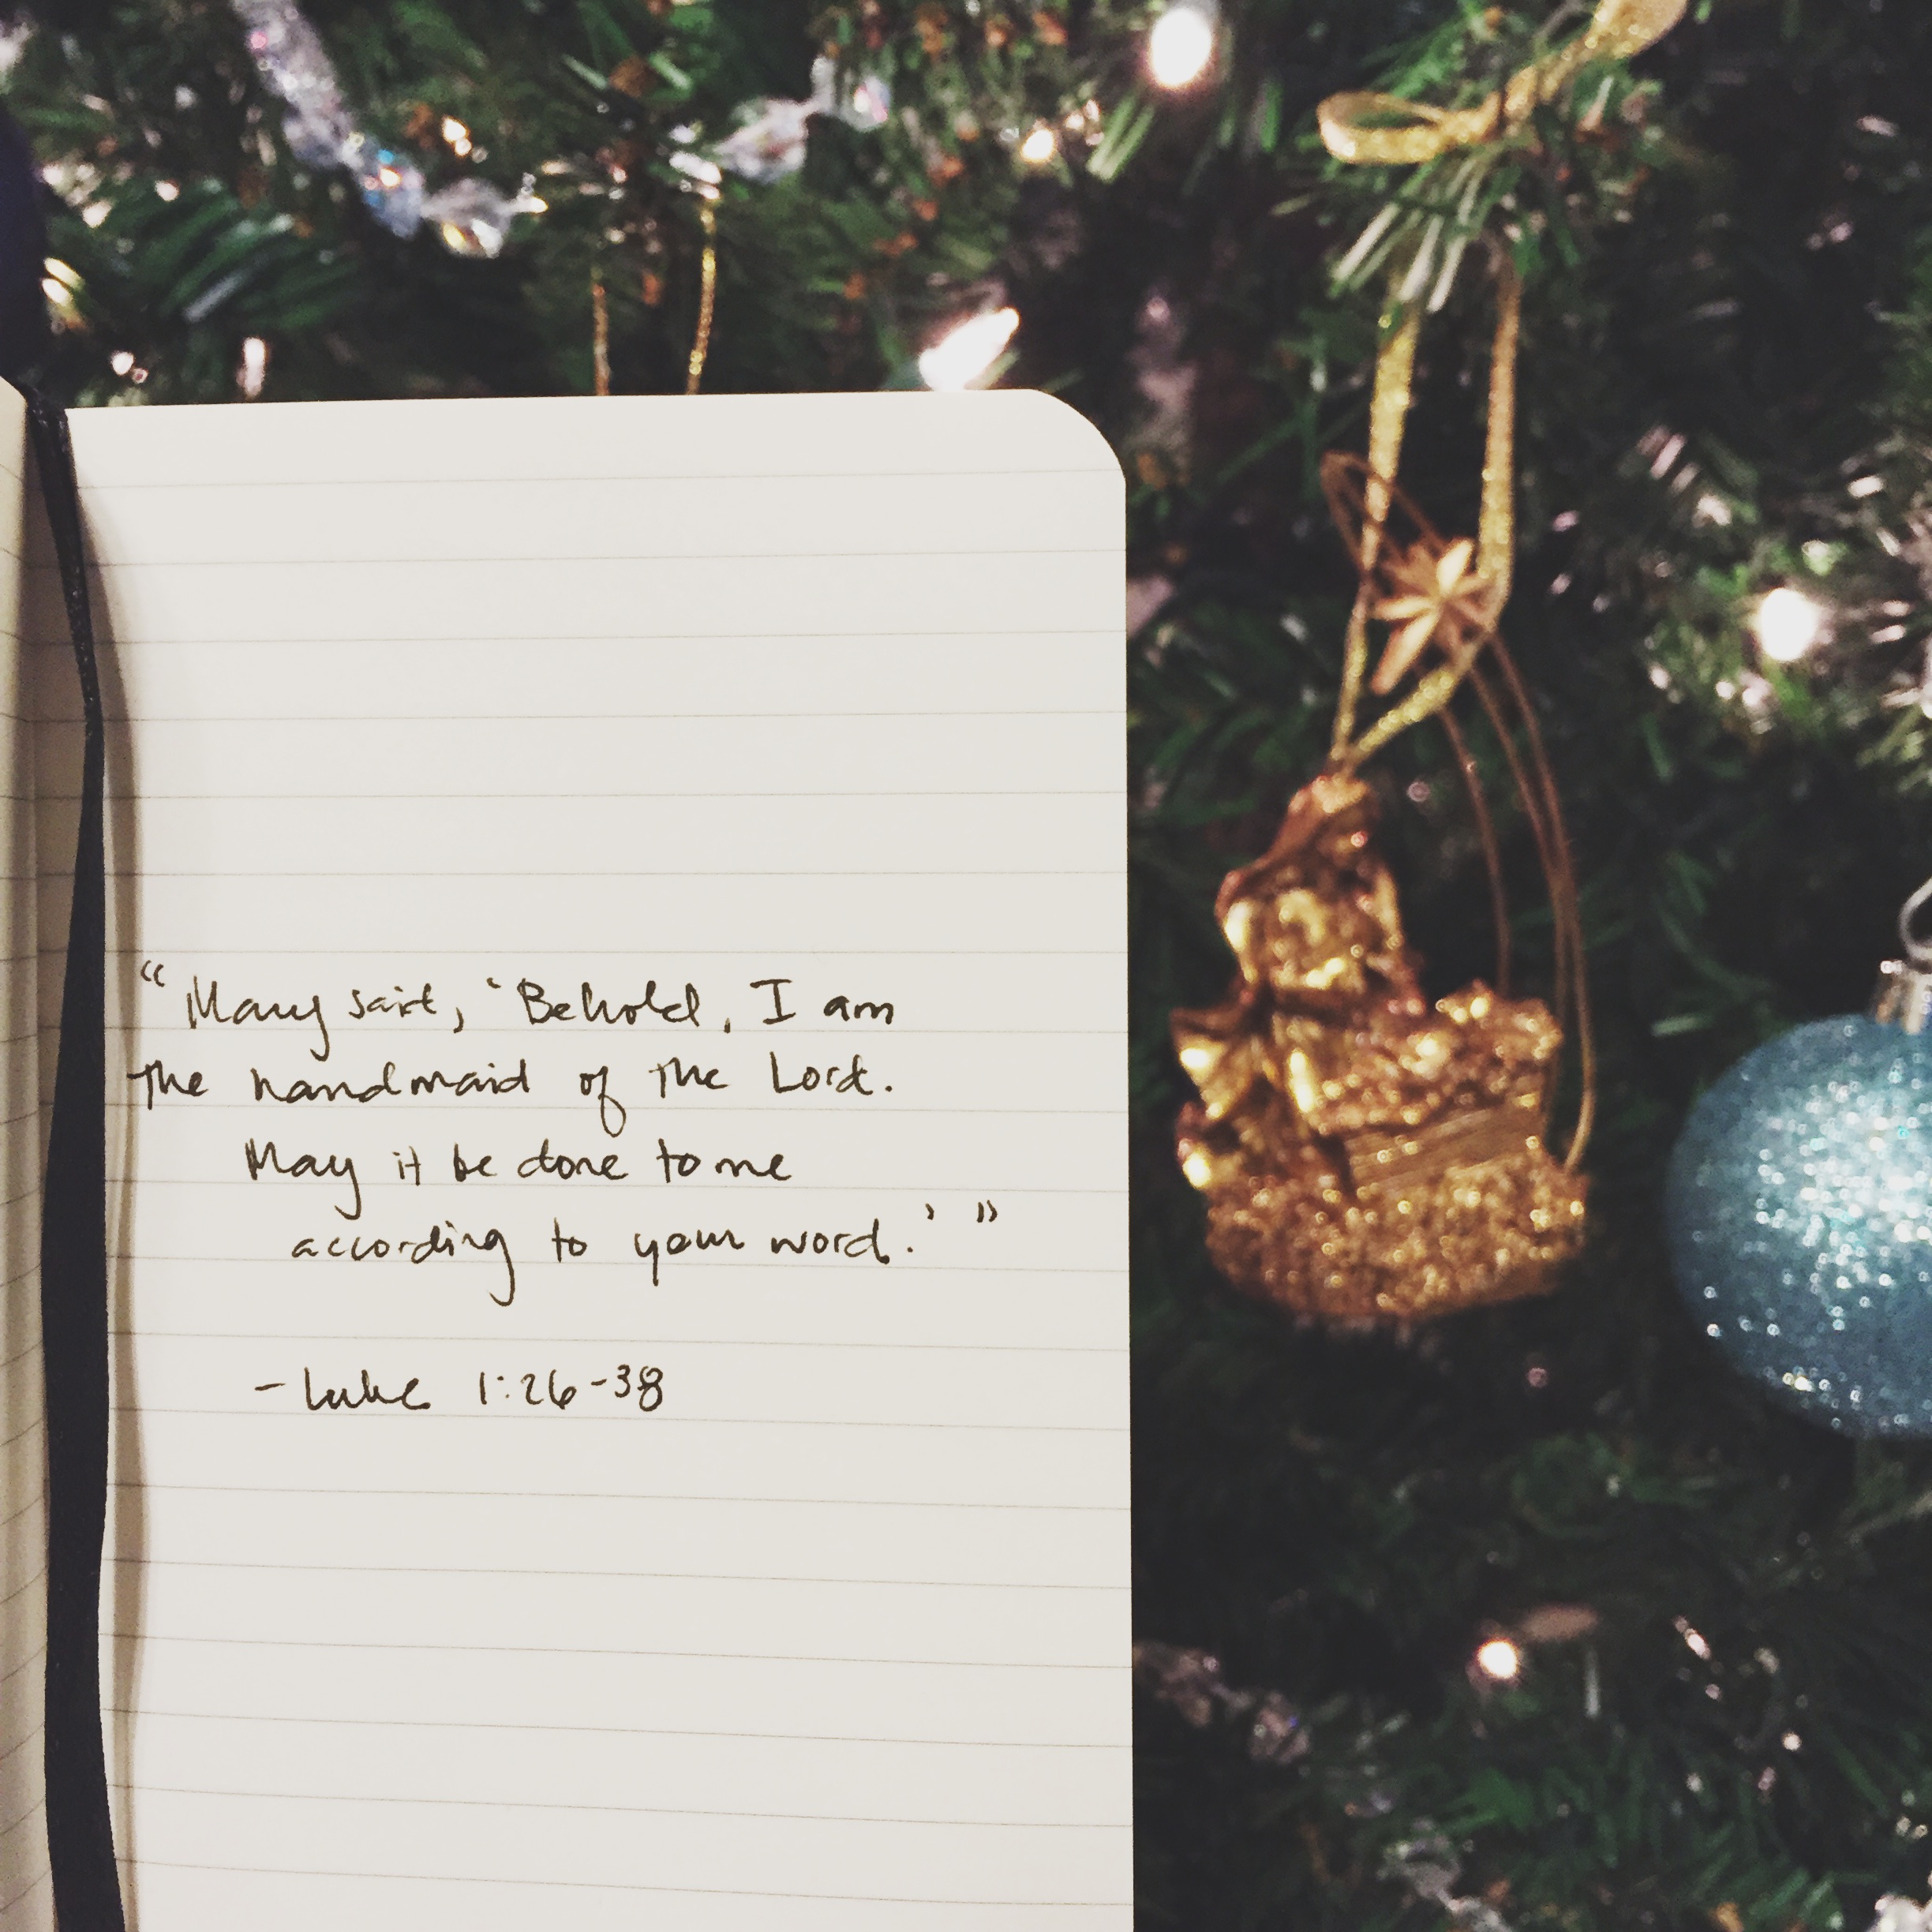 “Mary said, ‘Behold, I am
the handmaid of the Lord.
May it be done to me
according to your word.’”
- Luke 1:26-38